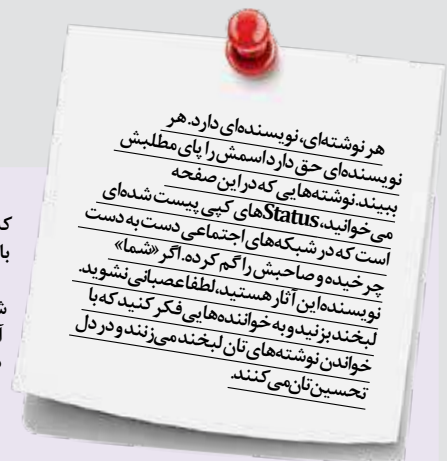 هر نوشته‌ای، نویسنده‌ای دارد. هر
نویسنده‌ای حق دارد اسمش را پای مطلبش
ببیند. نوشته‌هایی که در این صفحه
می‌خوانید، Statusهای کپی پیست شده‌ای
است که در شبکه‌های اجتماعی دست به دست
چرخیده و صاحبش را گم کرده. اگر «شما»
نویسنده این آثار هستید، لطفا عصبانی نشوید.
لبخند بزنید و به خواننده‌هایی فکر کنید که با
خواندن نوشته‌های تان لبخند می‌زنند و در دل
تحسین تان می‌کنند.